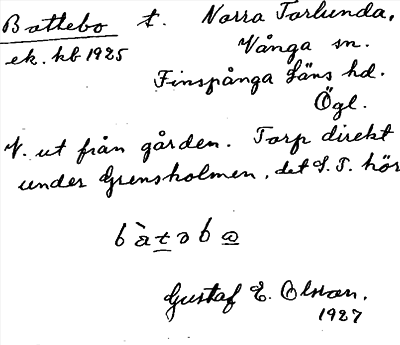 Battebo t. Norra Torlunda,
ek. kb 1925 Vånga sn.
Finspånga läns hd.
Ögl.
V. ut från gården. Torp direkt
under Grensholmen, det S. T. hör
bàtəbə
Gustaf E. Olsson.
1927